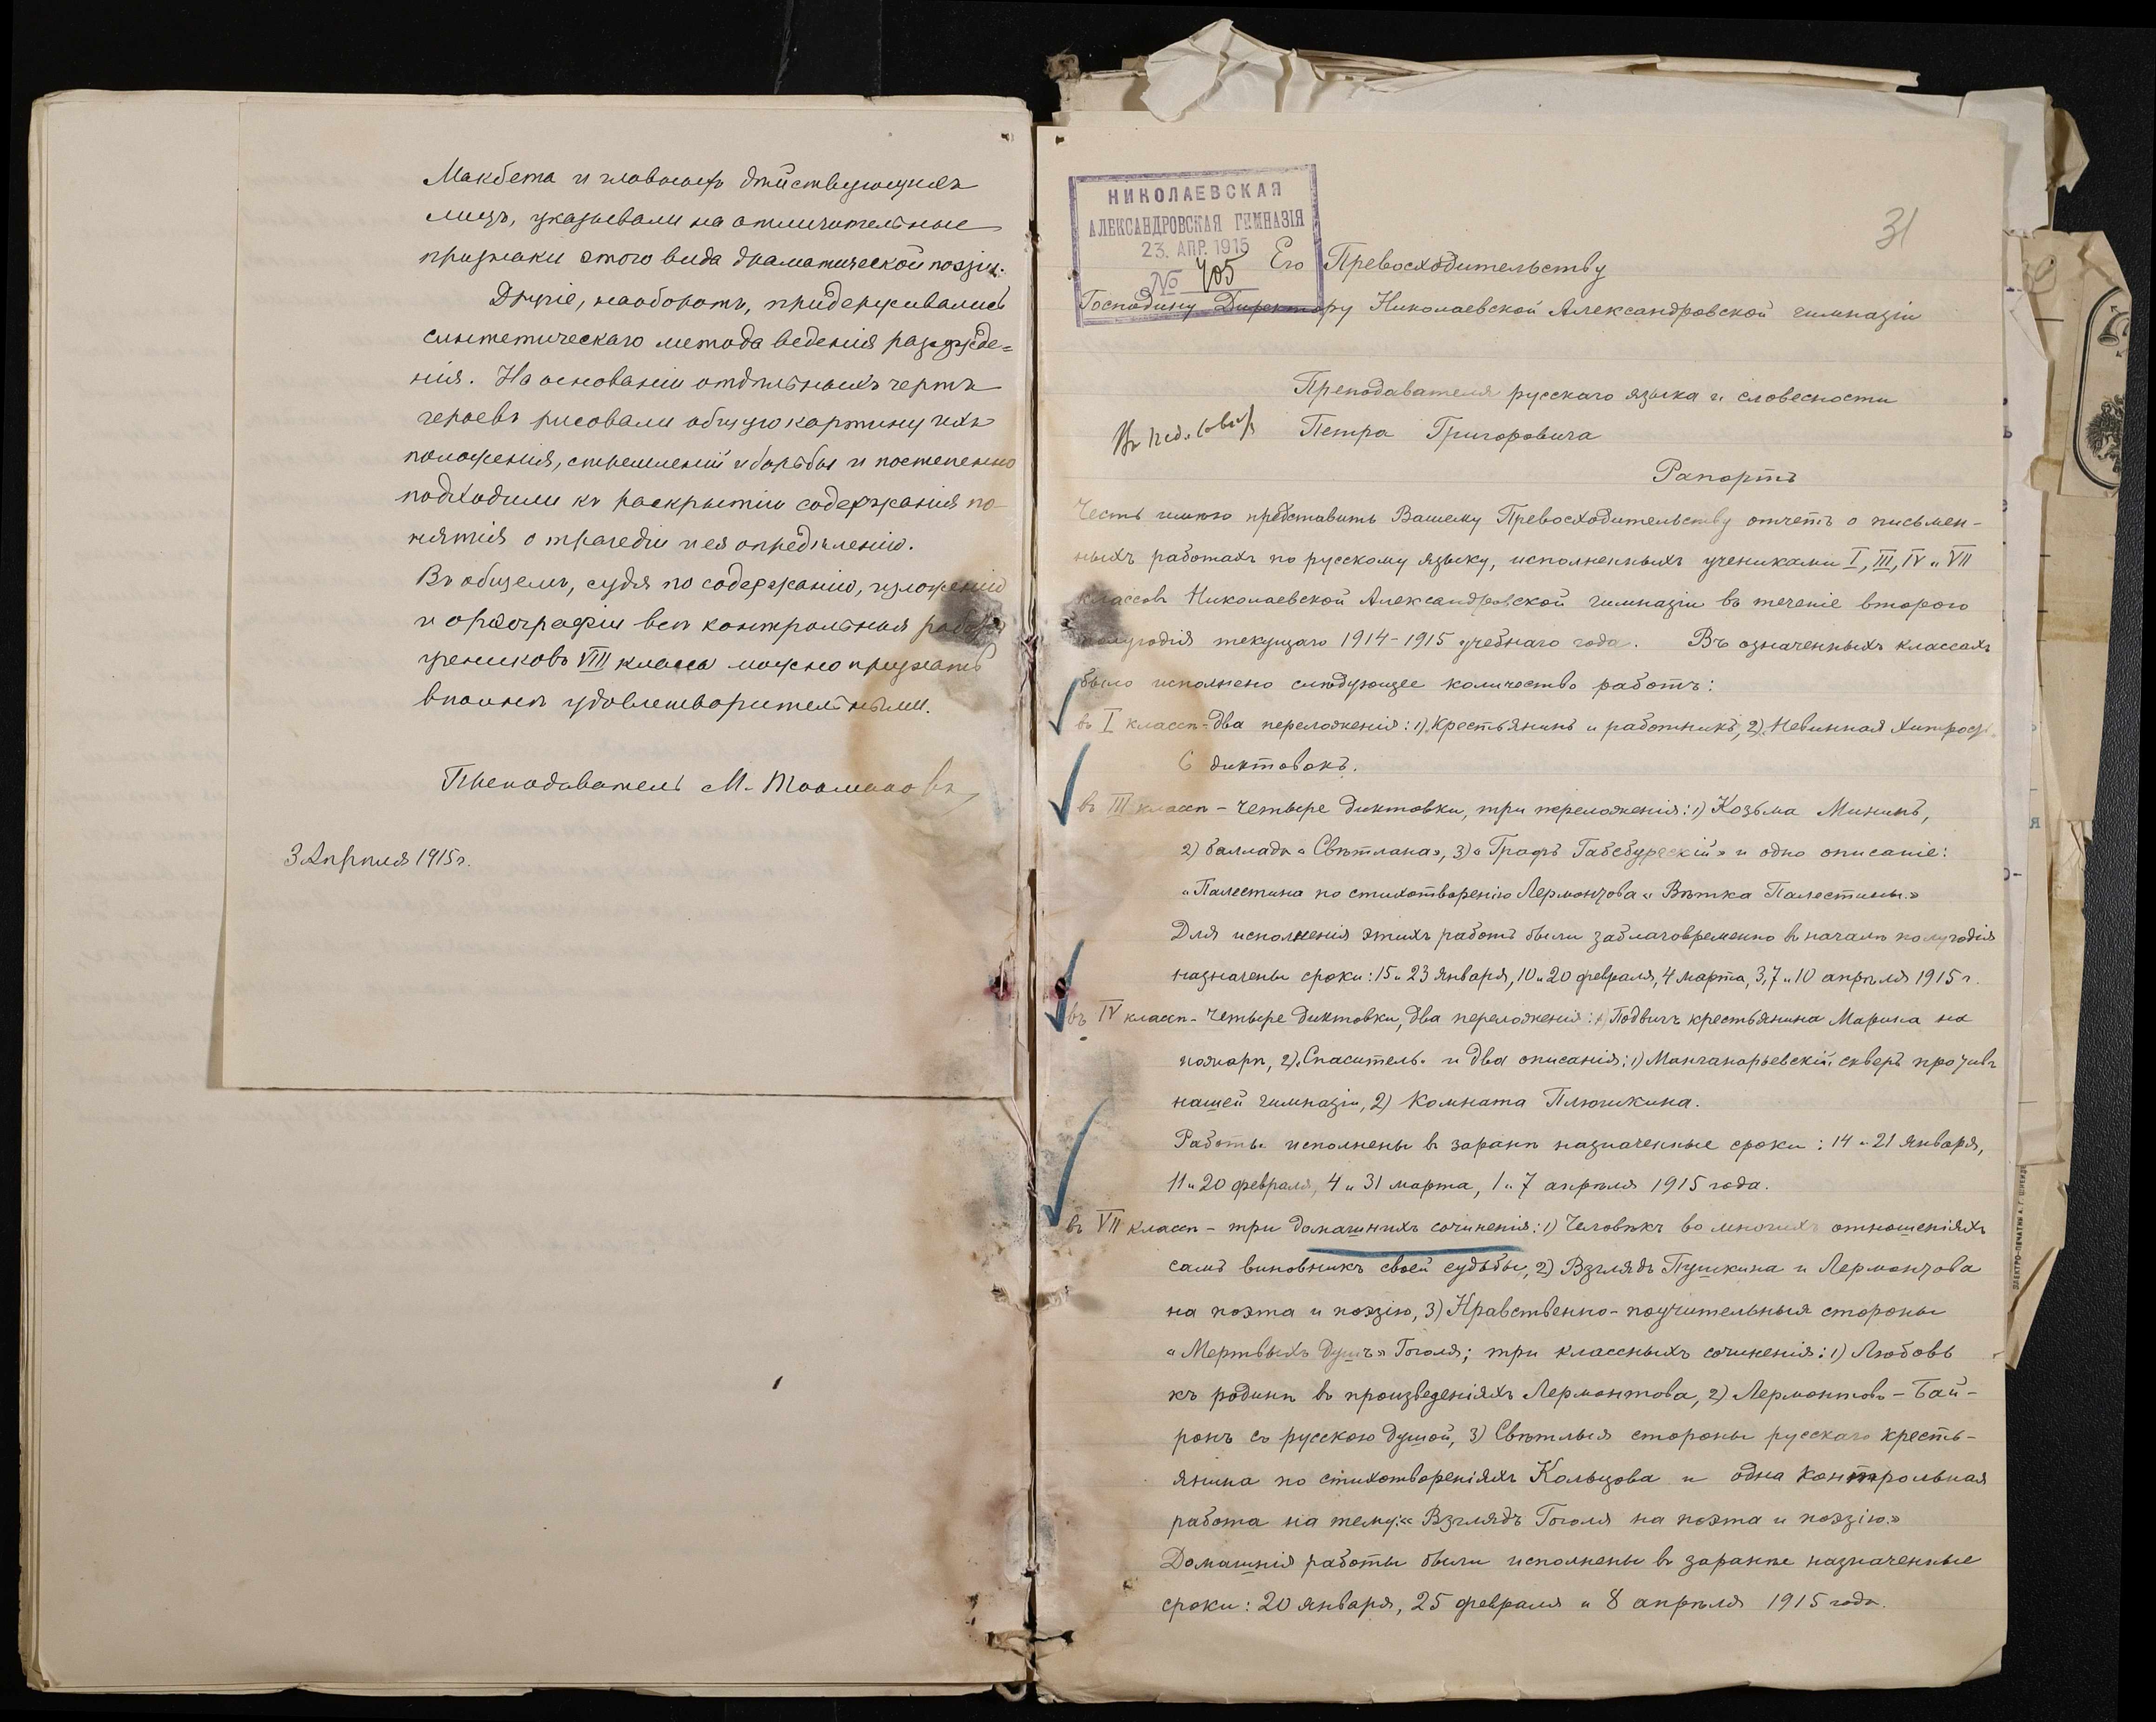 Макбета и главныхъ дѣйствующихъ
лицъ, указывали на отличительные
признаки этого вида драматической поэзіи.
Другіе, наоборотъ, придерживались
синтетическаго метода веденія разсужде=
нія. На основаніи отдѣльныхъ чертъ
героевъ рисовали общую картину ихъ
положенія, стремленій и борьбы и постепенно
подходили къ раскрытію содержанія по-
нятія о трагедіи и ея опредѣленію.
Въ общемъ, судя по содержанію, изложенію
и орѳографіи всѣ контрольныя работы
учениковъ VIII класса можно признать
вполнѣ удовлетворительными.
Преподаватель М.
3 Апрѣля 1915 г.
НИКОЛАЕВСКАЯ
АЛЕКСАНДРОВСКАЯ ГИМНАЗІЯ
23. АПР. 1915
№ 405
31
Его Превосходительству
Господину Директору Николаевской Александровской гимназіи
Преподавателя русскаго языка и словесности
Петра Григоровича
Рапортъ
Честь имѣю представить Вашему Превосходительству отчетъ о письмен-
ныхъ работахъ по русскому языку, исполненныхъ учениками I, III, IV и VII
классовъ Николаевской Александровской гимназіи въ теченіе второго
полугодія текущаго 1914-1915 учебнаго года. Въ означенныхъ классахъ
было исполнено слѣдующее количество работъ:
въ I классѣ - два переложенія: 1) „Крестьянинъ и работникъ", 2) „Невинная хитрость".
6 диктовокъ.
въ III классѣ - четыре диктовки, три переложенія: 1) Козьма Мининъ,
2) баллада „Свѣтлана", 3) „Графъ Габсбургскій" и одно описаніе:
„Палестина по стихотворенію Лермонтова „Вѣтка Палестины."
Для исполненія этихъ работъ были заблаговременно въ началѣ полугодія
назначены сроки: 15 и 23 января, 10 и 20 февраля, 4 марта, 3, 7 и 10 апрѣля 1915 г.
въ IV классѣ - четыре диктовки, два переложенія: 1) Подвигъ крестьянина Марина на
пожарѣ, 2) „Спаситель" и два описанія: 1) Манганарьевскій скверъ противъ
нашей гимназіи, 2) Комната Плюшкина.
Работы исполнены въ заранѣ назначенные сроки: 14 и 21 января,
11 и 20 февраля, 4 и 31 марта, 1 и 7 апрѣля 1915 года.
въ VII классѣ - три домашнихъ сочиненія: 1) Человѣкъ во многихъ отношеніяхъ
самъ виновникъ своей судьбы, 2) Взглядъ Пушкина и Лермонтова
на поэта и поэзію, 3) Нравственно-поучительныя стороны
„Мертвыхъ душъ" Гоголя; три классныхъ сочиненія: 1) Любовь
къ родинѣ въ произведеніяхъ Лермонтова, 2) Лермонтовъ - Бай-
ронъ съ русскою душой, 3) Свѣтлыя стороны русскаго кресть-
янина по стихотвореніямъ Кольцова и одна контрольная
работа на тему: „Взглядъ Гоголя на поэта и поэзію."
Домашнія работы были исполнены въ заранѣе назначенные
сроки: 20 января, 25 февраля и 8 апрѣля 1915 года.